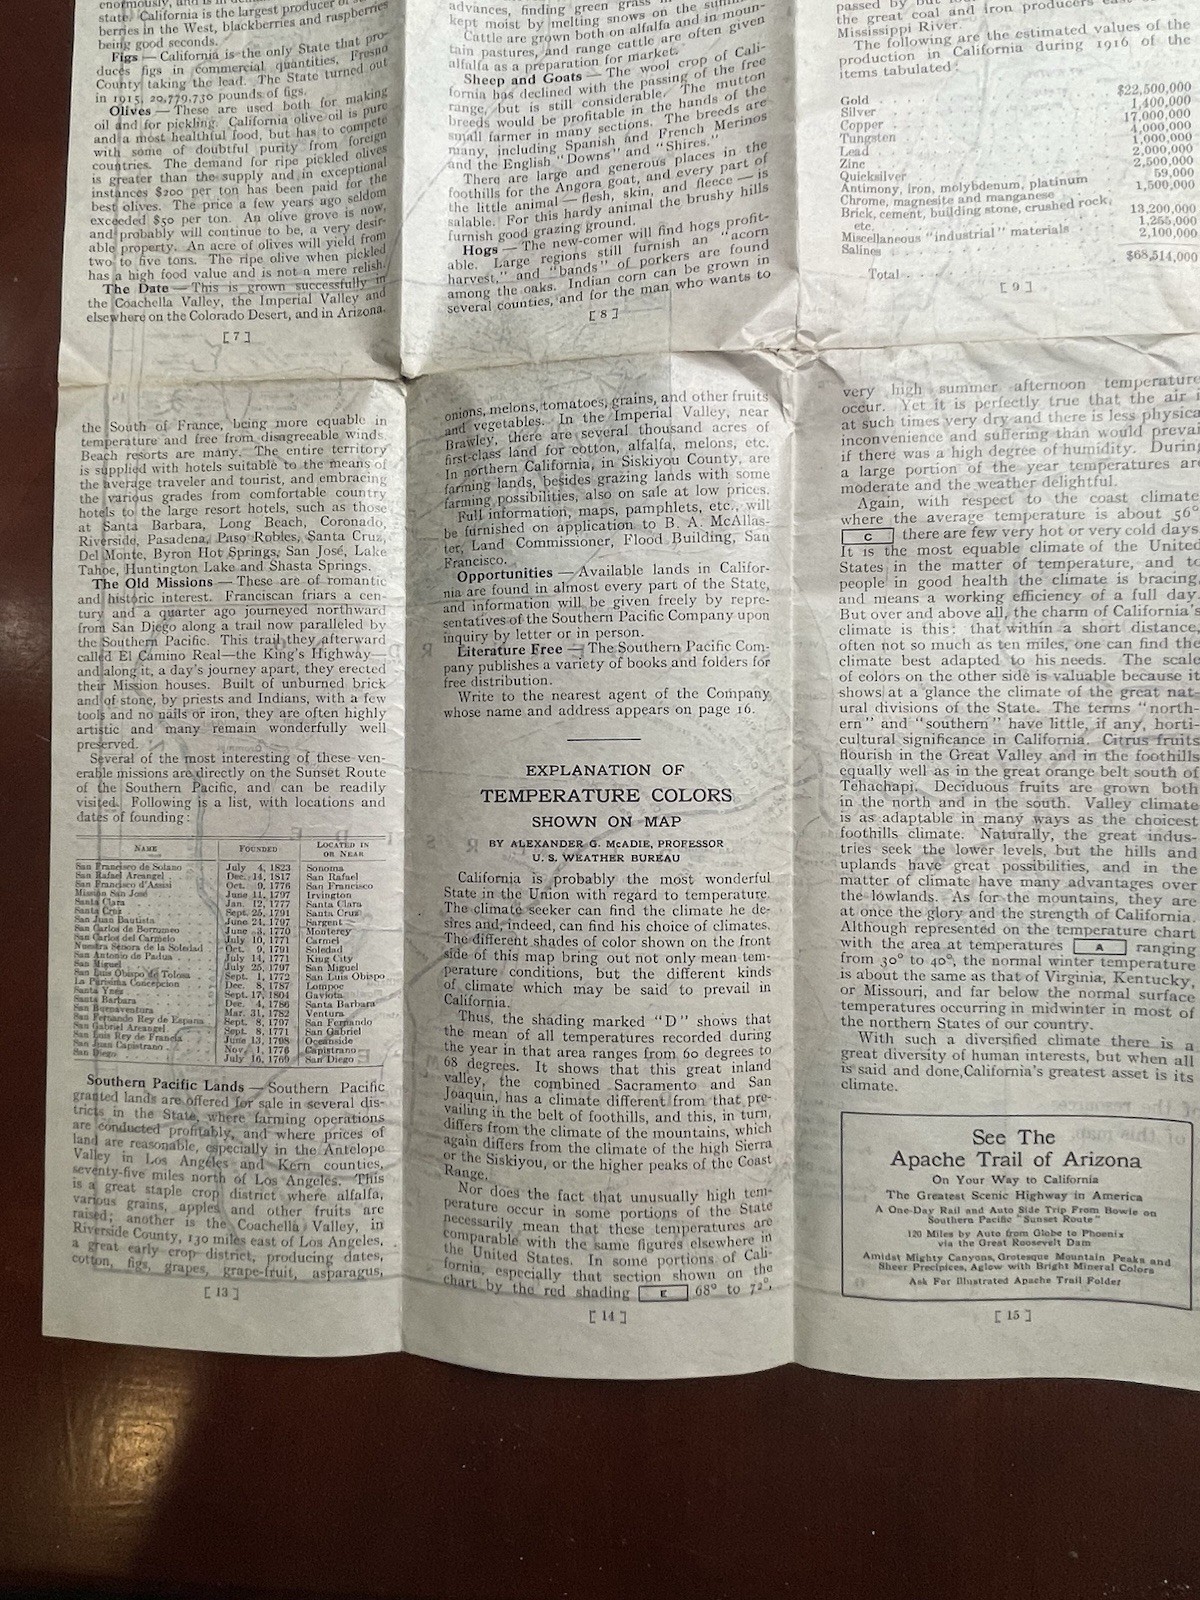 enormously, and is in
state. California is the largest producer of
berries in the West, blackberries and raspberries
being good seconds.
Figs — California is the only State that pro-
duces figs in commercial quantities, Fresno
County taking the lead. The State turned out
in 1915, 20,779,730 pounds of figs.
Olives — These are used both for making
oil and for pickling. California olive oil is pure
and a most healthful food, but has to compete
with some of doubtful purity from foreign
countries. The demand for ripe pickled olives
is greater than the supply and in exceptional
instances $200 per ton has been paid for the
best olives. The price a few years ago seldom
exceeded $50 per ton. An olive grove is now,
and probably will continue to be, a very desir-
able property. An acre of olives will yield from
two to five tons. The ripe olive when pickled
has a high food value and is not a mere relish.
The Date — This is grown successfully in
the Coachella Valley, the Imperial Valley and
elsewhere on the Colorado Desert, and in Arizona.
[ 7 ]
advances, finding green grass
kept moist by melting snows on the
Cattle are grown both on alfalfa and in moun-
tain pastures, and range cattle are often given
alfalfa as a preparation for market.
Sheep and Goats — The wool crop of Cali-
fornia has declined with the passing of the free
range, but is still considerable. The mutton
breeds would be profitable in the hands of the
small farmer in many sections. The breeds are
many, including Spanish and French Merinos
and the English "Downs" and "Shires."
There are large and generous places in the
foothills for the Angora goat, and every part of
the little animal — flesh, skin, and fleece — is
salable. For this hardy animal the brushy hills
furnish good grazing ground.
Hogs — The new-comer will find hogs profit-
able. Large regions still furnish an "acorn
harvest," and "bands" of porkers are found
among the oaks. Indian corn can be grown in
several counties, and for the man who wants to
[ 8 ]
passed by but
the great coal and iron producers east of
Mississippi River.
The following are the estimated values of the
production in California during 1916 of the
items tabulated:
Gold $22,500,000
Silver 1,400,000
Copper 17,000,000
Tungsten 4,000,000
Lead 1,000,000
Zinc 2,000,000
Quicksilver 2,500,000
Antimony, iron, molybdenum, platinum 59,000
Chrome, magnesite and manganese 1,500,000
Brick, cement, building stone, crushed rock,
etc. 13,200,000
Miscellaneous "industrial" materials 1,255,000
Salines 2,100,000
Total $68,514,000
[ 9 ]
the South of France, being more equable in
temperature and free from disagreeable winds.
Beach resorts are many. The entire territory
is supplied with hotels suitable to the means of
the average traveler and tourist, and embracing
the various grades from comfortable country
hotels to the large resort hotels, such as those
at Santa Barbara, Long Beach, Coronado,
Riverside, Pasadena, Paso Robles, Santa Cruz,
Del Monte, Byron Hot Springs, San José, Lake
Tahoe, Huntington Lake and Shasta Springs.
The Old Missions — These are of romantic
and historic interest. Franciscan friars a cen-
tury and a quarter ago journeyed northward
from San Diego along a trail now paralleled by
the Southern Pacific. This trail they afterward
called El Camino Real—the King's Highway—
and along it, a day's journey apart, they erected
their Mission houses. Built of unburned brick
and of stone, by priests and Indians, with a few
tools and no nails or iron, they are often highly
artistic and many remain wonderfully well
preserved.
Several of the most interesting of these ven-
erable missions are directly on the Sunset Route
of the Southern Pacific, and can be readily
visited. Following is a list, with locations and
dates of founding:
NAME FOUNDED LOCATED IN OR NEAR
San Francisco de Solano July 4, 1823 Sonoma
San Rafael Arcangel Dec. 14, 1817 San Rafael
San Francisco d'Assisi Oct. 9, 1776 San Francisco
Mission San José June 11, 1797 Irvington
Santa Clara Jan. 12, 1777 Santa Clara
Santa Cruz Sept. 25, 1791 Santa Cruz
San Juan Bautista June 24, 1797 Sargent
San Carlos de Borromeo June 3, 1770 Monterey
San Carlos del Carmelo July 10, 1771 Carmel
Nuestra Senora de la Soledad Oct. 9, 1791 Soledad
San Antonio de Padua July 14, 1771 King City
San Miguel July 25, 1797 San Miguel
San Luis Obispo de Tolosa Sept. 1, 1772 San Luis Obispo
La Purisima Concepcion Dec. 8, 1787 Lompoc
Santa Ynes Sept. 17, 1804 Gaviota
Santa Barbara Dec. 4, 1786 Santa Barbara
San Buenaventura Mar. 31, 1782 Ventura
San Fernando Rey de Espana Sept. 8, 1797 San Fernando
San Gabriel Arcangel Sept. 8, 1771 San Gabriel
San Luis Rey de Francia June 13, 1798 Oceanside
San Juan Capistrano Nov. 1, 1776 Capistrano
San Diego July 16, 1769 San Diego
Southern Pacific Lands — Southern Pacific
granted lands are offered for sale in several dis-
tricts in the State, where farming operations
are conducted profitably, and where prices of
land are reasonable, especially in the Antelope
Valley in Los Angeles and Kern counties,
seventy-five miles north of Los Angeles. This
is a great staple crop district where alfalfa,
various grains, apples and other fruits are
raised; another is the Coachella Valley, in
Riverside County, 130 miles east of Los Angeles,
a great early crop district, producing dates,
cotton, figs, grapes, grape-fruit, asparagus,
[ 13 ]
onions, melons, tomatoes, grains, and other fruits
and vegetables. In the Imperial Valley, near
Brawley, there are several thousand acres of
first-class land for cotton, alfalfa, melons, etc.
In northern California, in Siskiyou County, are
farming lands, besides grazing lands with some
farming possibilities, also on sale at low prices.
Full information, maps, pamphlets, etc., will
be furnished on application to B. A. McAllas-
ter, Land Commissioner, Flood Building, San
Francisco.
Opportunities — Available lands in Califor-
nia are found in almost every part of the State,
and information will be given freely by repre-
sentatives of the Southern Pacific Company upon
inquiry by letter or in person.
Literature Free — The Southern Pacific Com-
pany publishes a variety of books and folders for
free distribution.
Write to the nearest agent of the Company
whose name and address appears on page 16.
EXPLANATION OF
TEMPERATURE COLORS
SHOWN ON MAP
BY ALEXANDER G. McADIE, PROFESSOR
U. S. WEATHER BUREAU
California is probably the most wonderful
State in the Union with regard to temperature.
The climate seeker can find the climate he de-
sires and, indeed, can find his choice of climates.
The different shades of color shown on the front
side of this map bring out not only mean tem-
perature conditions, but the different kinds
of climate which may be said to prevail in
California.
Thus, the shading marked "D" shows that
the mean of all temperatures recorded during
the year in that area ranges from 60 degrees to
68 degrees. It shows that this great inland
valley, the combined Sacramento and San
Joaquin, has a climate different from that pre-
vailing in the belt of foothills, and this, in turn,
differs from the climate of the mountains, which
again differs from the climate of the high Sierra
or the Siskiyou, or the higher peaks of the Coast
Range.
Nor does the fact that unusually high tem-
perature occur in some portions of the State
necessarily mean that these temperatures are
comparable with the same figures elsewhere in
the United States. In some portions of Cali-
fornia, especially that section shown on the
chart by the red shading E 68° to 72°,
[ 14 ]
very high summer afternoon temperature
occur. Yet it is perfectly true that the air i
at such times very dry and there is less physica
inconvenience and suffering than would prevai
if there was a high degree of humidity. During
a large portion of the year temperatures are
moderate and the weather delightful.
Again, with respect to the coast climate
where the average temperature is about 56°
C there are few very hot or very cold days.
It is the most equable climate of the United
States in the matter of temperature, and to
people in good health the climate is bracing,
and means a working efficiency of a full day.
But over and above all, the charm of California's
climate is this: that within a short distance,
often not so much as ten miles, one can find the
climate best adapted to his needs. The scale
of colors on the other side is valuable because it
shows at a glance the climate of the great nat-
ural divisions of the State. The terms "north-
ern" and "southern" have little, if any, horti-
cultural significance in California. Citrus fruits
flourish in the Great Valley and in the foothills
equally well as in the great orange belt south of
Tehachapi. Deciduous fruits are grown both
in the north and in the south. Valley climate
is as adaptable in many ways as the choicest
foothills climate. Naturally, the great indus-
tries seek the lower levels, but the hills and
uplands have great possibilities, and in the
matter of climate have many advantages over
the lowlands. As for the mountains, they are
at once the glory and the strength of California.
Although represented on the temperature chart
with the area at temperatures A ranging
from 30° to 40°, the normal winter temperature
is about the same as that of Virginia, Kentucky,
or Missouri, and far below the normal surface
temperatures occurring in midwinter in most of
the northern States of our country.
With such a diversified climate there is a
great diversity of human interests, but when all
is said and done, California's greatest asset is its
climate.
See The
Apache Trail of Arizona
On Your Way to California
The Greatest Scenic Highway in America
A One-Day Rail and Auto Side Trip From Bowie on
Southern Pacific "Sunset Route"
120 Miles by Auto from Globe to Phoenix
via the Great Roosevelt Dam
Amidst Mighty Canyons, Grotesque Mountain Peaks and
Sheer Precipices, Aglow with Bright Mineral Colors
Ask For Illustrated Apache Trail Folder
[ 15 ]